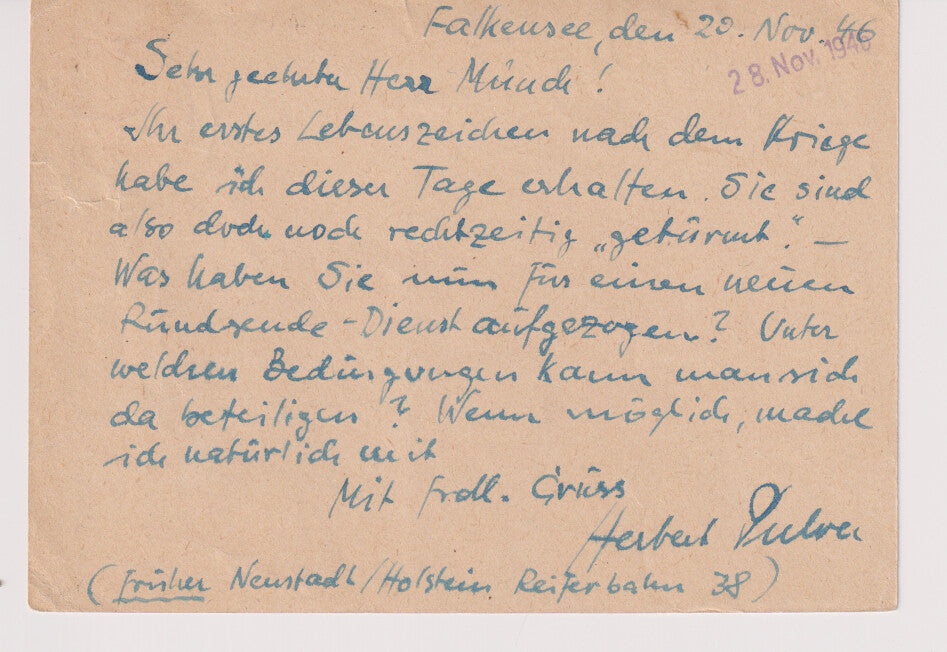 Falkensee, den 20. Nov. 46
28. Nov. 1946
Sehr geehrter Herr Münch!
Ihr erstes Lebenszeichen nach dem Kriege
habe ich dieser Tage erhalten. Sie sind
also doch noch rechtzeitig „getürmt". —
Was haben Sie nun für einen neuen
Rundsende-Dienst aufgezogen? Unter
welchen Bedingungen kann man sich
da beteiligen? Wenn möglich, mache
ich natürlich mit
Mit frdl. Grüss
Herbert Pulver
(Früher Neustadt/Holstein Reiferbahn 38)